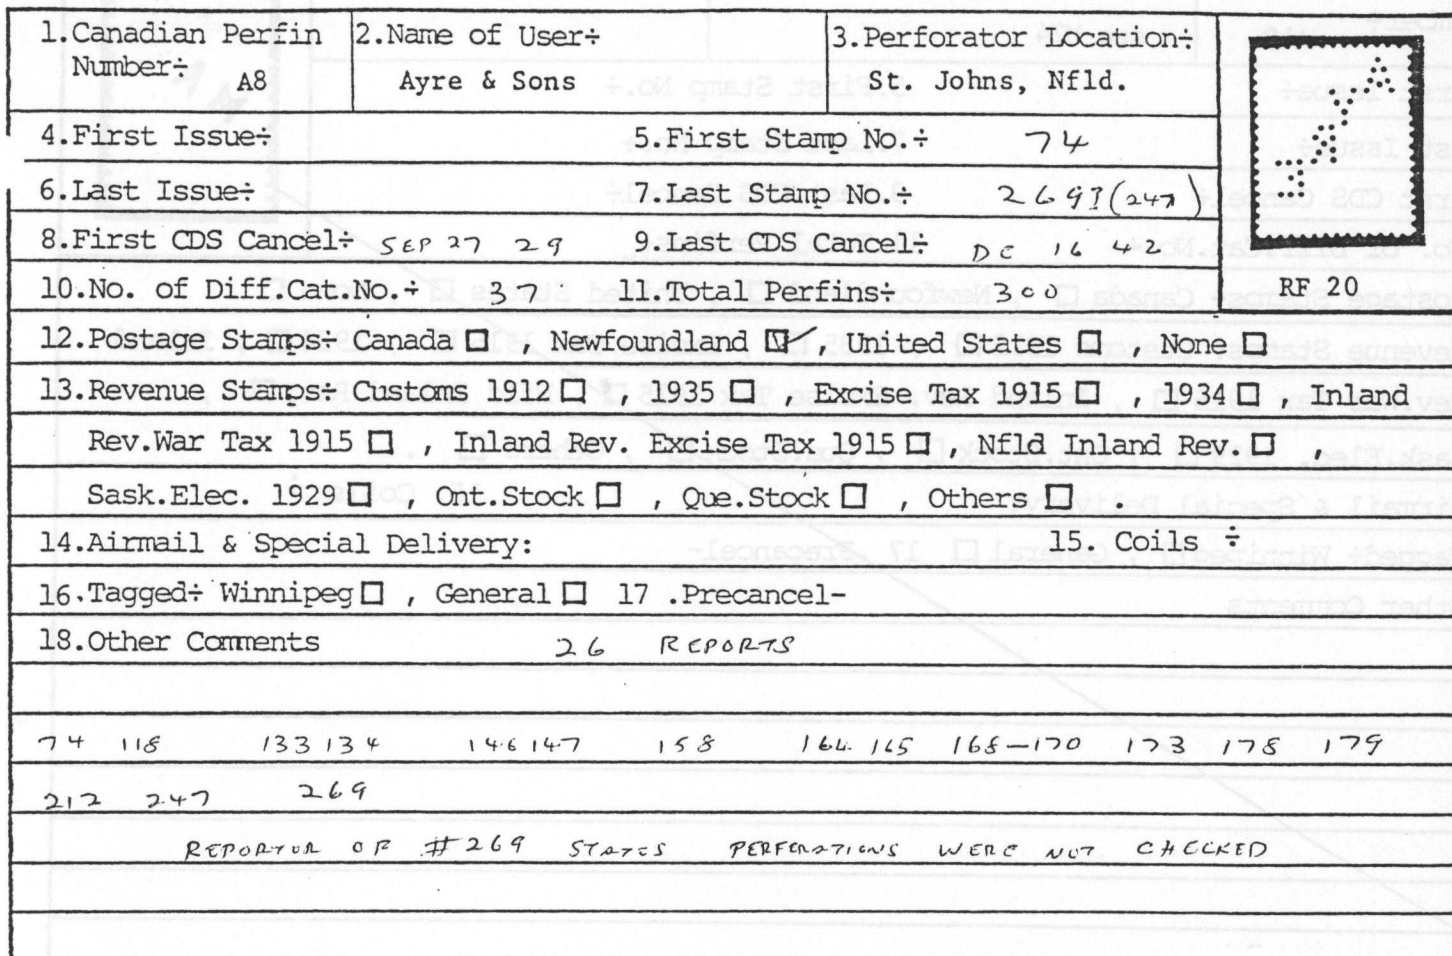 1.Canadian Perfin Number÷ A8
2.Name of User÷ Ayre & Sons
3.Perforator Location÷ St Johns, Nfld.
4.First Issue÷ 5.First Stamp No.÷ 74
6.Last Issue÷ 7.Last Stamp No.÷ 269?(247)
8.First CDS Cancel÷ SEP 27 29 9.Last CDS Cancel÷ DC 16 42
10.No. of Diff.Cat.No.÷ 37 11.Total Perfins÷ 300
RF 20
12.Postage Stamps÷ Canada ☐ , Newfoundland ☑, United States ☐ , None ☐
13.Revenue Stamps÷ Customs 1912 ☐ , 1935 ☐ , Excise Tax 1915 ☐ , 1934 ☐ Inland
Rev.War Tax 1915 ☐ , Inland Rev. Excise Tax 1915 ☐, Nfld Inland Rev. ☐
Sask.Elec. 1929 ☐ , Ont.Stock ☐ , Que.Stock ☐ , Others ☐
14.Airmail & Special Delivery: 15. Coils ÷
16.Tagged÷ Winnipeg ☐ , General ☐ 17 .Precancel-
18.Other Comments 26 REPORTS
74 118 133 134 146 147 158 164 165 168-170 173 178 179
212 247 269
REPORTOR OF #269 STATES PERFERATIONS WERE NOT CHECKED